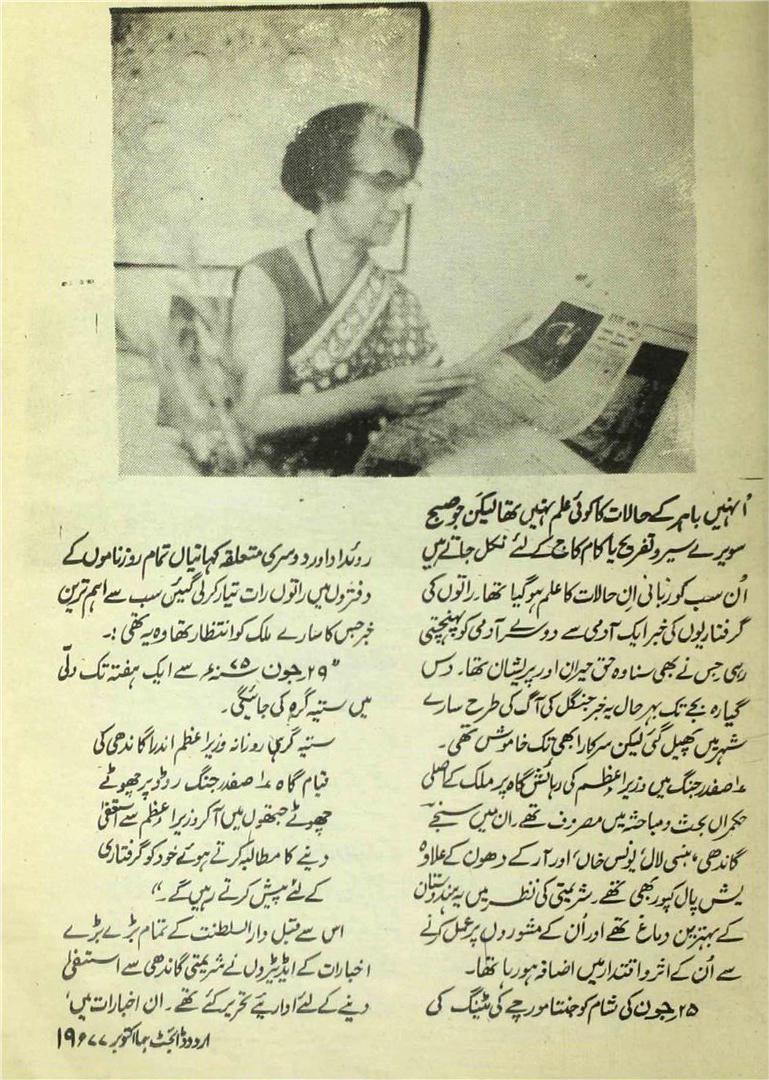 اُنہیں باہر کے حالات کا کوئی علم نہیں تھا لیکن جو صبح
سویرے سیر و تفریح یا کام کاج کے لئے نکل جاتے ہیں
اُن سب کو زبانی اِن حالات کا علم ہو گیا تھا۔ راتوں کی
گرفتاریوں کی خبر ایک آدمی سے دوسرے آدمی کو پہنچتی
رہی جس نے بھی سنا وہ حق حیران اور پریشان تھا۔ دس
گیارہ بجے تک بہر حال یہ خبر جنگل کی آگ کی طرح سارے
شہر میں پھیل گئی لیکن سرکار ابھی تک خاموش تھی۔
۱۔ صفدر جنگ میں وزیر اعظم کی رہائش گاہ پر ملک کے اصلی
حکمراں بحث و مباحثہ میں مصروف تھے۔ ان میں سنجے
گاندھی، بنسی لال، یونس خاں، اور آر کے دھون کے علاوہ
یش پال کپور بھی تھے۔ شریمتی کی نظر میں یہ ہندوستان
کے بہترین دماغ تھے اور اُن کے مشوروں پر عمل کرنے
سے اُن کے اثر و اقتدار میں اضافہ ہو رہا تھا۔
۲۵ جون کی شام کو جنتا مورچے کی مٹینگ کی
روئداد اور دوسری متعلقہ کہانیاں تمام روزناموں کے
دفتروں میں راتوں رات تیار کرلی گیئں سب سے اہم ترین
خبر جس کا سارے ملک کو انتظار تھا وہ یہ تھی :۔
"۲۹ جون ۷۵ سنہء سے ایک ہفتہ تک دلّی
میں ستیہ گرہ کی جائیگی۔
ستیہ گرہی روزانہ وزیر اعظم اندرا گاندھی کی
قیام گاہ ۱۔ صفدر جنگ روڈ پر چھوٹے
چھوٹے جتھوں میں آکر وزیر اعظم سے استعفیٰ
دینے کا مطالبہ کرتے ہوئے خود کو گرفتاری
کے لئے پیش کرتے رہیں گے۔"
اس سے قبل دارالسلطنت کے تمام بڑے بڑے
اخبارات کے ایڈیٹروں نے شریمتی گاندھی سے استعفیٰ
دینے کے لئے اداریئے تحریر کئے تھے۔ ان اخبارات میں'
اردو ڈائجسٹ ہما اکتوبر ۱۹۷۷ء